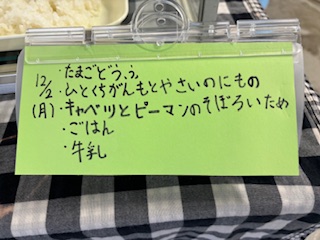 ・たまごどうふ
12/2 ・ひとくちがんもとやさいのにもの
(月) ・キャベツとピーマンのそぼろいため
・ごはん
・牛乳